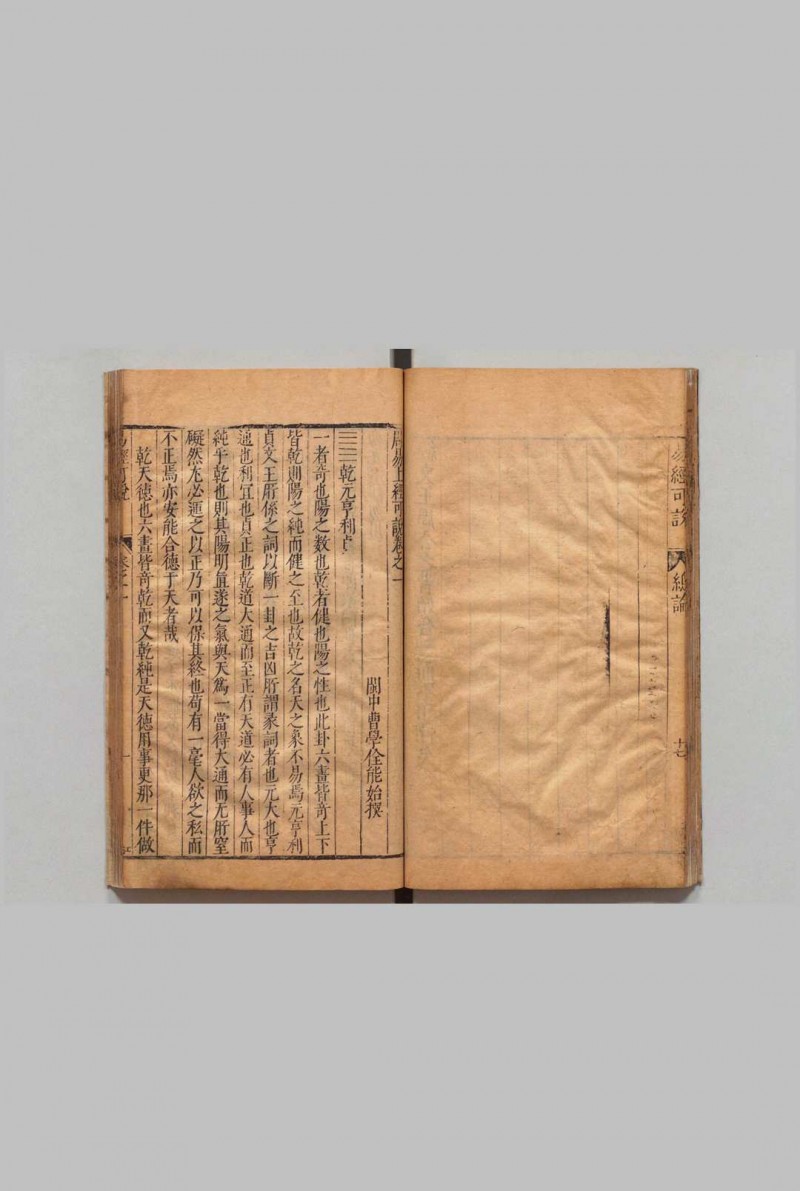 易經可說
總論
十七
周易上經可說卷之一
閩中曹學佺能始撰
乾元亨利貞
一者奇也陽之數也乾者健也陽之性也此卦六畫皆奇上下
皆乾則陽之純而健之至也故乾之名天之象不易焉元亨利
貞文王所係之詞以斷一卦之吉凶所謂彖詞者也元大也亨
通也利宜也貞正也乾道大通而至正有天道必有人事人而
純乎乾也則其陽明直遂之氣與天為一當得大通而无所窒
礙然尤必運之以正乃可以保其終也苟有一毫人欲之私而
不正焉亦安能合德于天者哉
乾天德也六畫皆奇乾而又乾純是天德用事更那一件做
易經可說
卷之一
一